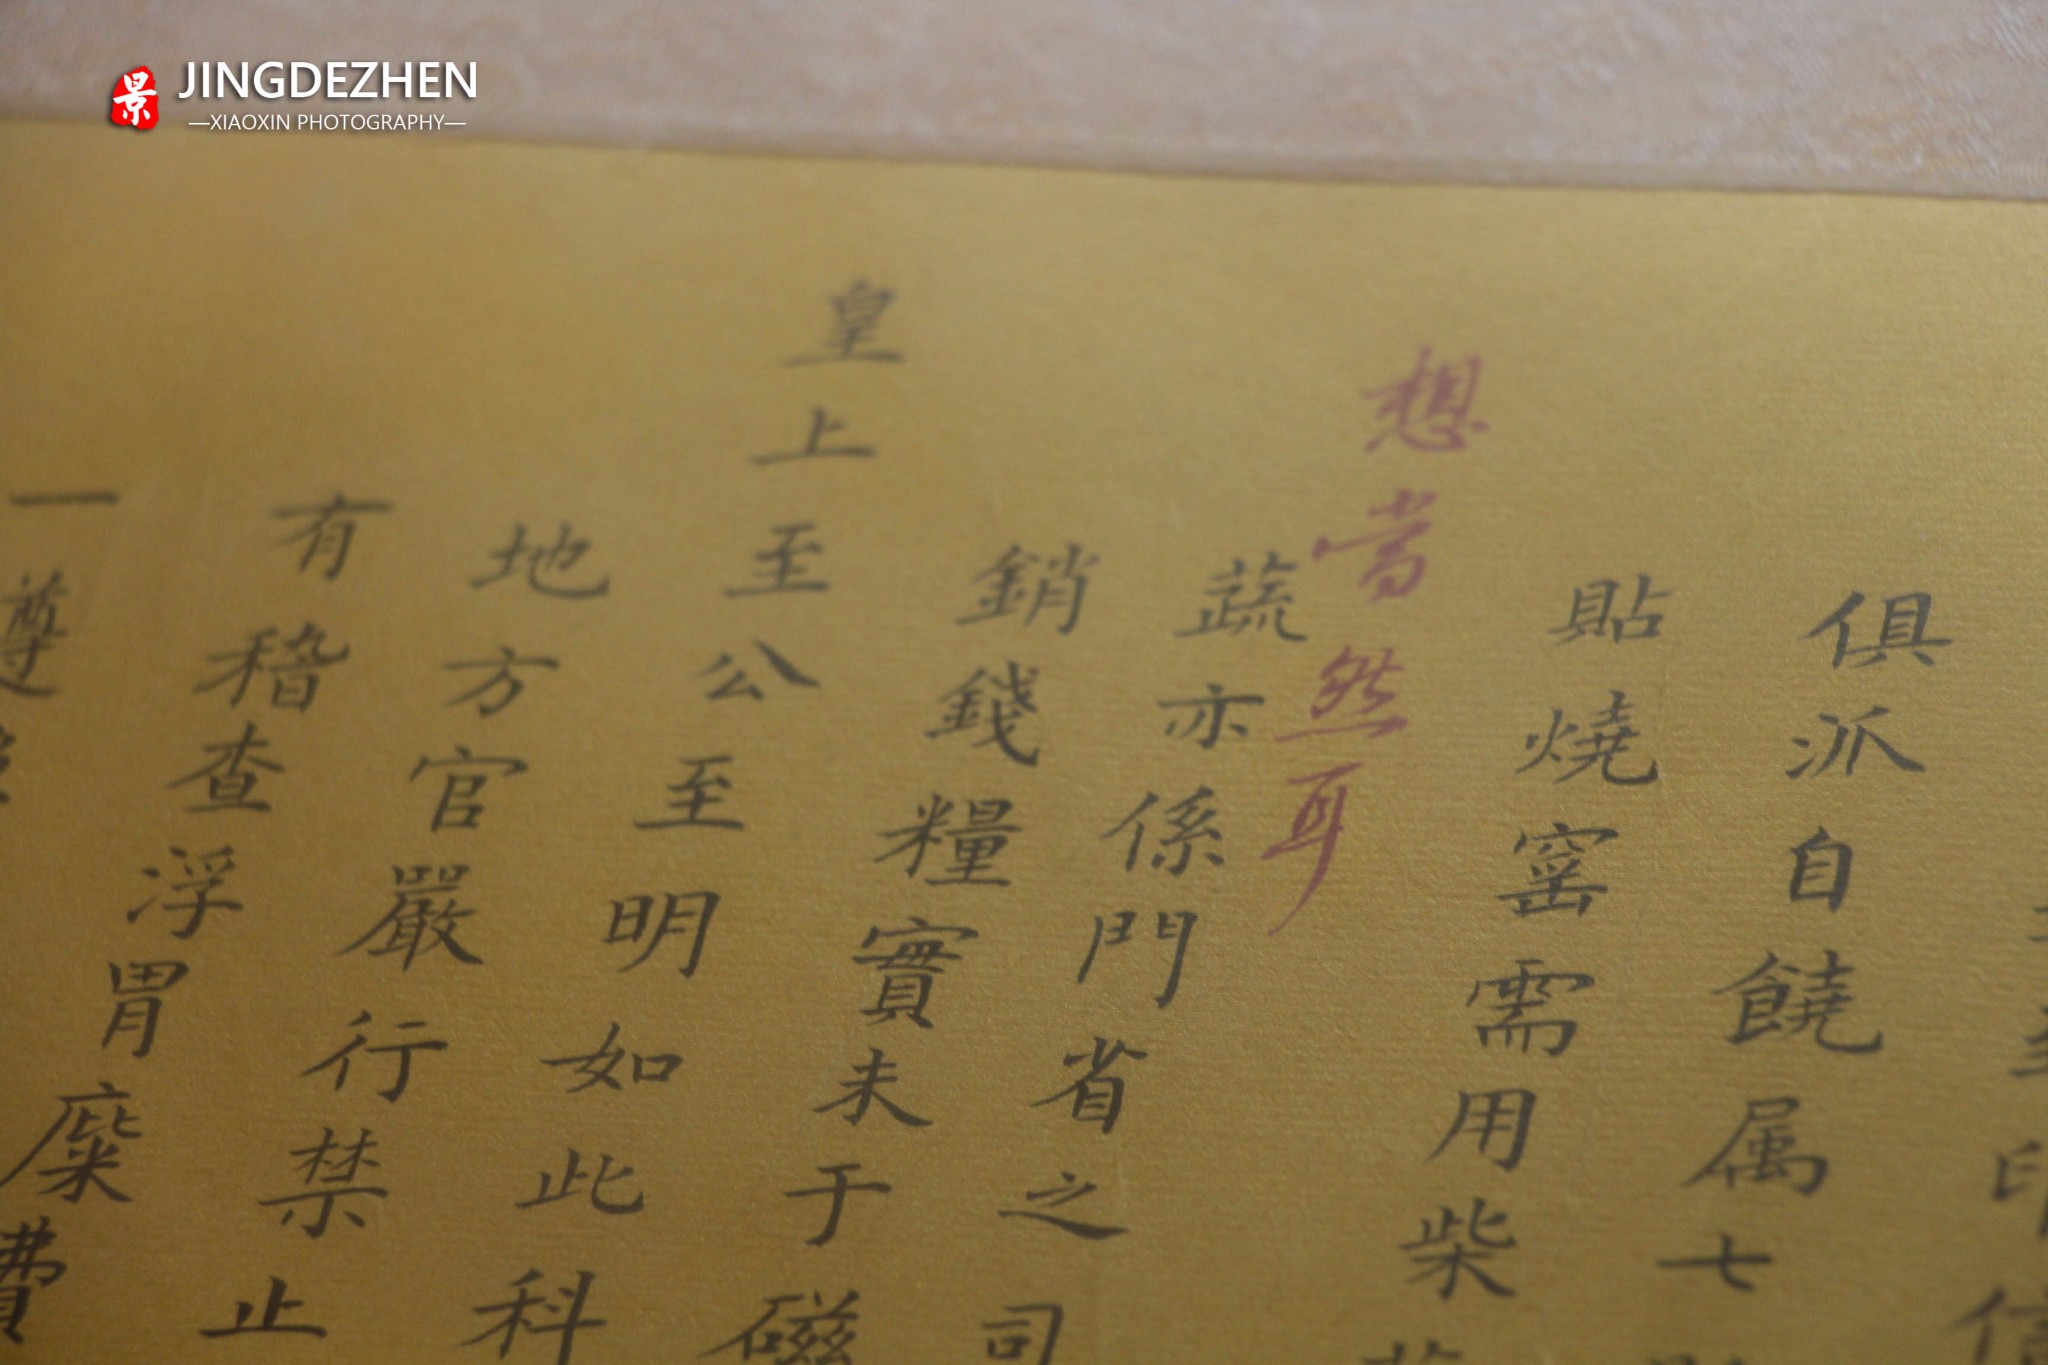 景 JINGDEZHEN
—XIAOXIN PHOTOGRAPHY—
印信
俱派自饒属七
貼燒窑需用柴
想當然耳
蔬亦係門省之司
銷錢糧實未于磁
皇上至公至明如此科
地方官嚴行禁止
有稽查浮冐糜費
一尊